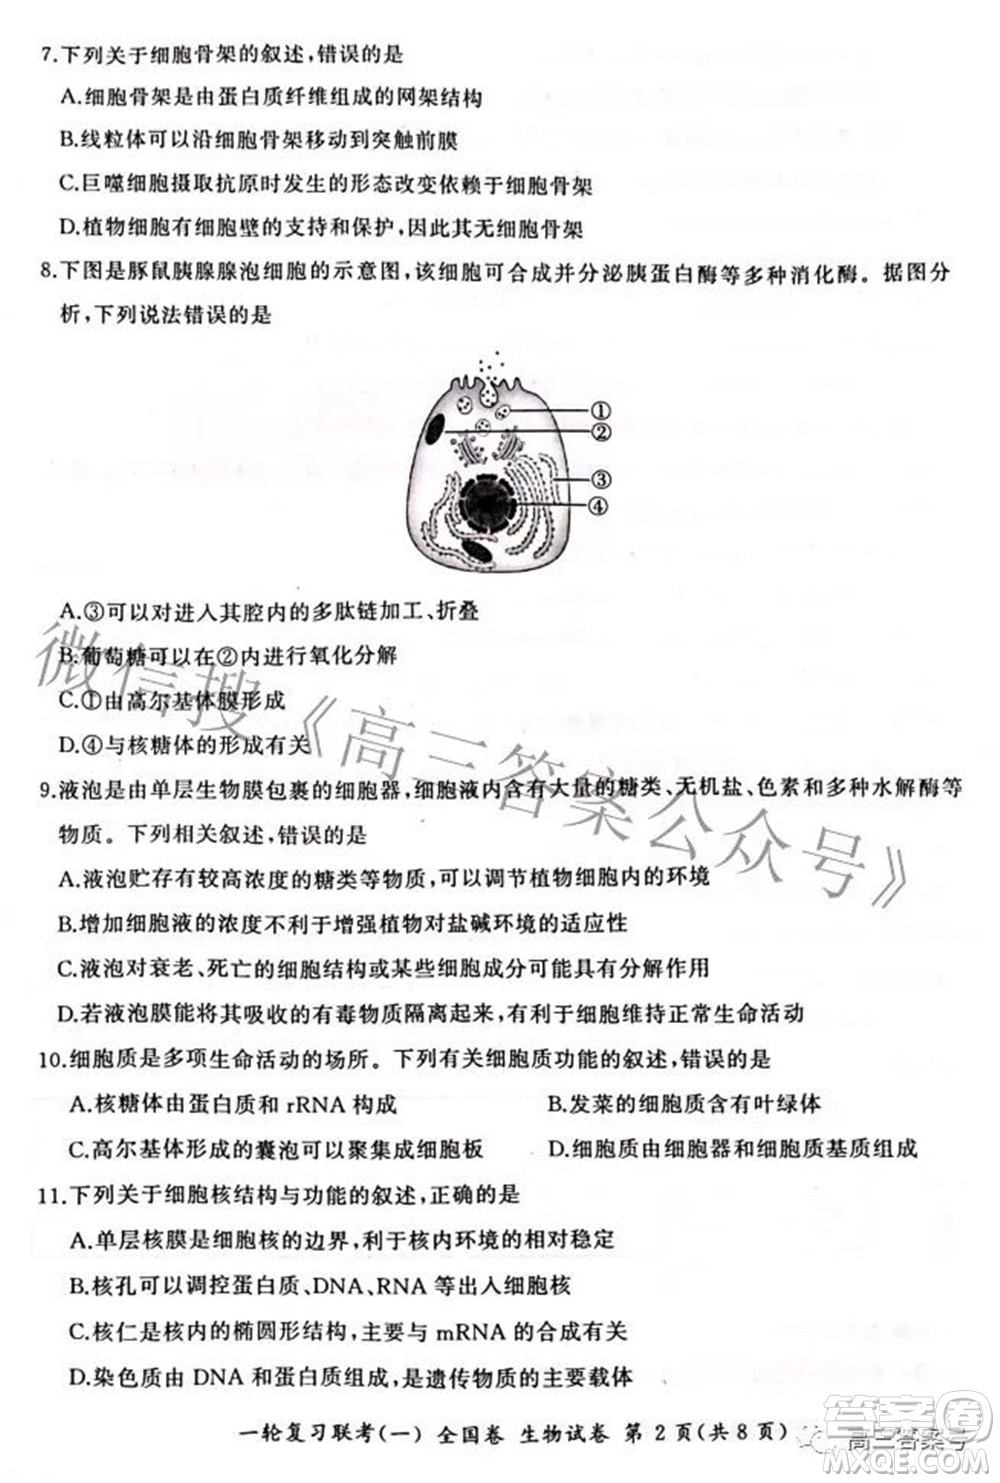 7.下列关于细胞骨架的叙述,错误的是
A.细胞骨架是由蛋白质纤维组成的网架结构
B.线粒体可以沿细胞骨架移动到突触前膜
C.巨噬细胞摄取抗原时发生的形态改变依赖于细胞骨架
D.植物细胞有细胞壁的支持和保护,因此其无细胞骨架
8.下图是豚鼠胰腺腺泡细胞的示意图,该细胞可合成并分泌胰蛋白酶等多种消化酶。据图分
析,下列说法错误的是
①
②
③
④
A.③可以对进入其腔内的多肽链加工、折叠
B.葡萄糖可以在②内进行氧化分解
C.①由高尔基体膜形成
D.④与核糖体的形成有关
9.液泡是由单层生物膜包裹的细胞器,细胞液内含有大量的糖类、无机盐、色素和多种水解酶等
物质。下列相关叙述,错误的是
A.液泡贮存有较高浓度的糖类等物质,可以调节植物细胞内的环境
B.增加细胞液的浓度不利于增强植物对盐碱环境的适应性
C.液泡对衰老、死亡的细胞结构或某些细胞成分可能具有分解作用
D.若液泡膜能将其吸收的有毒物质隔离起来,有利于细胞维持正常生命活动
10.细胞质是多项生命活动的场所。下列有关细胞质功能的叙述,错误的是
A.核糖体由蛋白质和 rRNA 构成 B.发菜的细胞质含有叶绿体
C.高尔基体形成的囊泡可以聚集成细胞板 D.细胞质由细胞器和细胞质基质组成
11.下列关于细胞核结构与功能的叙述,正确的是
A.单层核膜是细胞核的边界,利于核内环境的相对稳定
B.核孔可以调控蛋白质、DNA、RNA 等出入细胞核
C.核仁是核内的椭圆形结构,主要与 mRNA 的合成有关
D.染色质由 DNA 和蛋白质组成,是遗传物质的主要载体
一轮复习联考(一) 全国卷 生物试卷 第 2 页(共 8 页)
微信搜《高三答案公众号》
高三答案号
答案圈
MXQE.COM